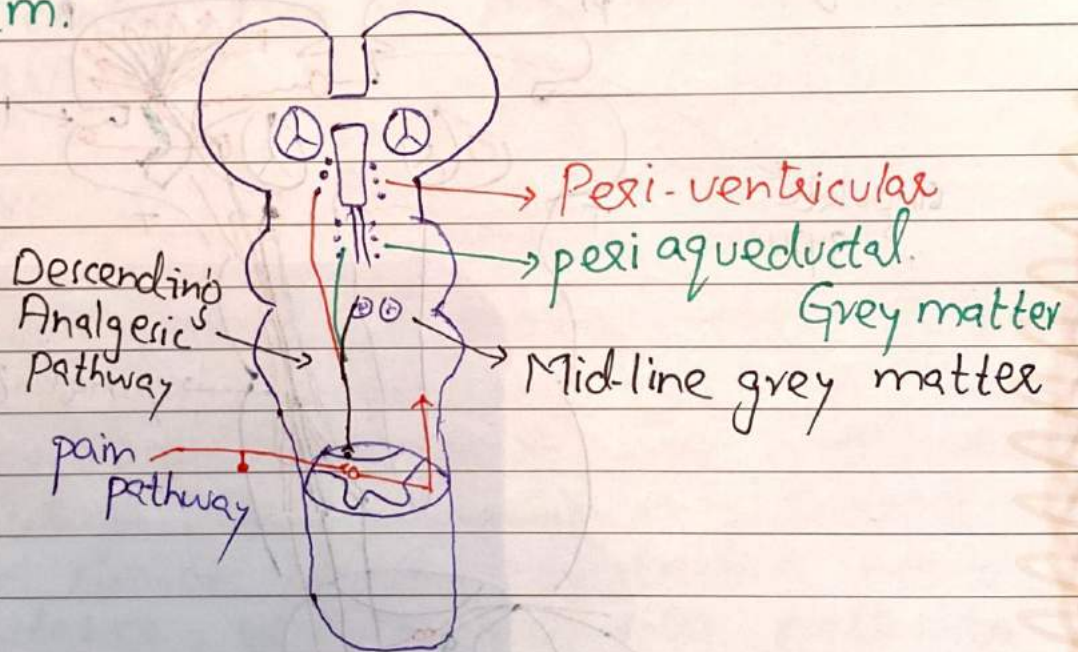 m.
Peri-ventricular
peri aqueductal.
Grey matter
Descending
Analgesic's
Pathway
Mid-line grey matter
pain
pathway